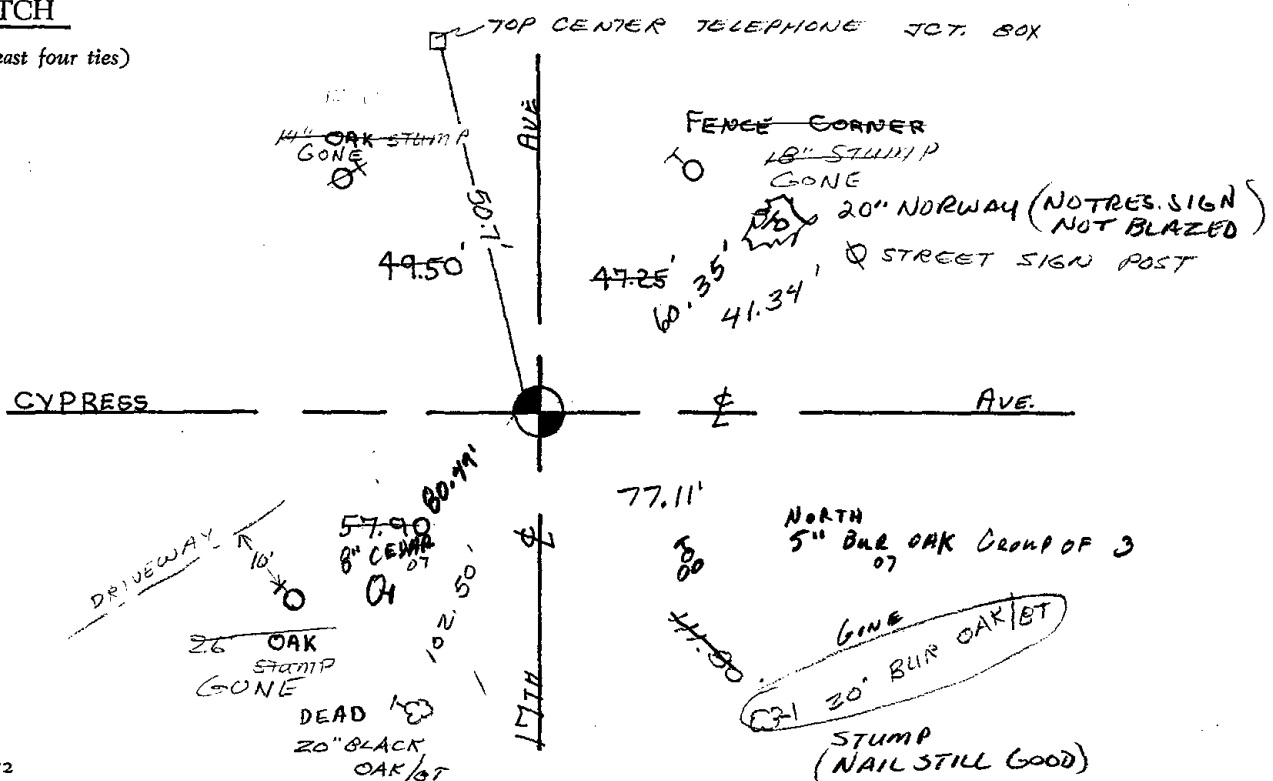 TCH
east four ties)
TOP CENTER TELEPHONE JCT. BOX
14" OAK STUMP
GONE
AVE
50.7'
FENCE CORNER
18" STUMP
GONE
20" NORWAY (NOTRES. SIGN
NOT BLAZED)
STREET SIGN POST
49.50'
47.25'
60.35'
41.34'
CYPRESS
℄
AVE.
80.49'
57.90
8" CEDAR
07
DRIVEWAY
10'
26 OAK
STUMP
GONE
102.50'
DEAD
20" BLACK
OAK/BT
17TH
℄
77.11'
NORTH
5" BUR OAK GROUP OF 3
07
GONE
20" BUR OAK/BT
STUMP
(NAIL STILL GOOD)
2